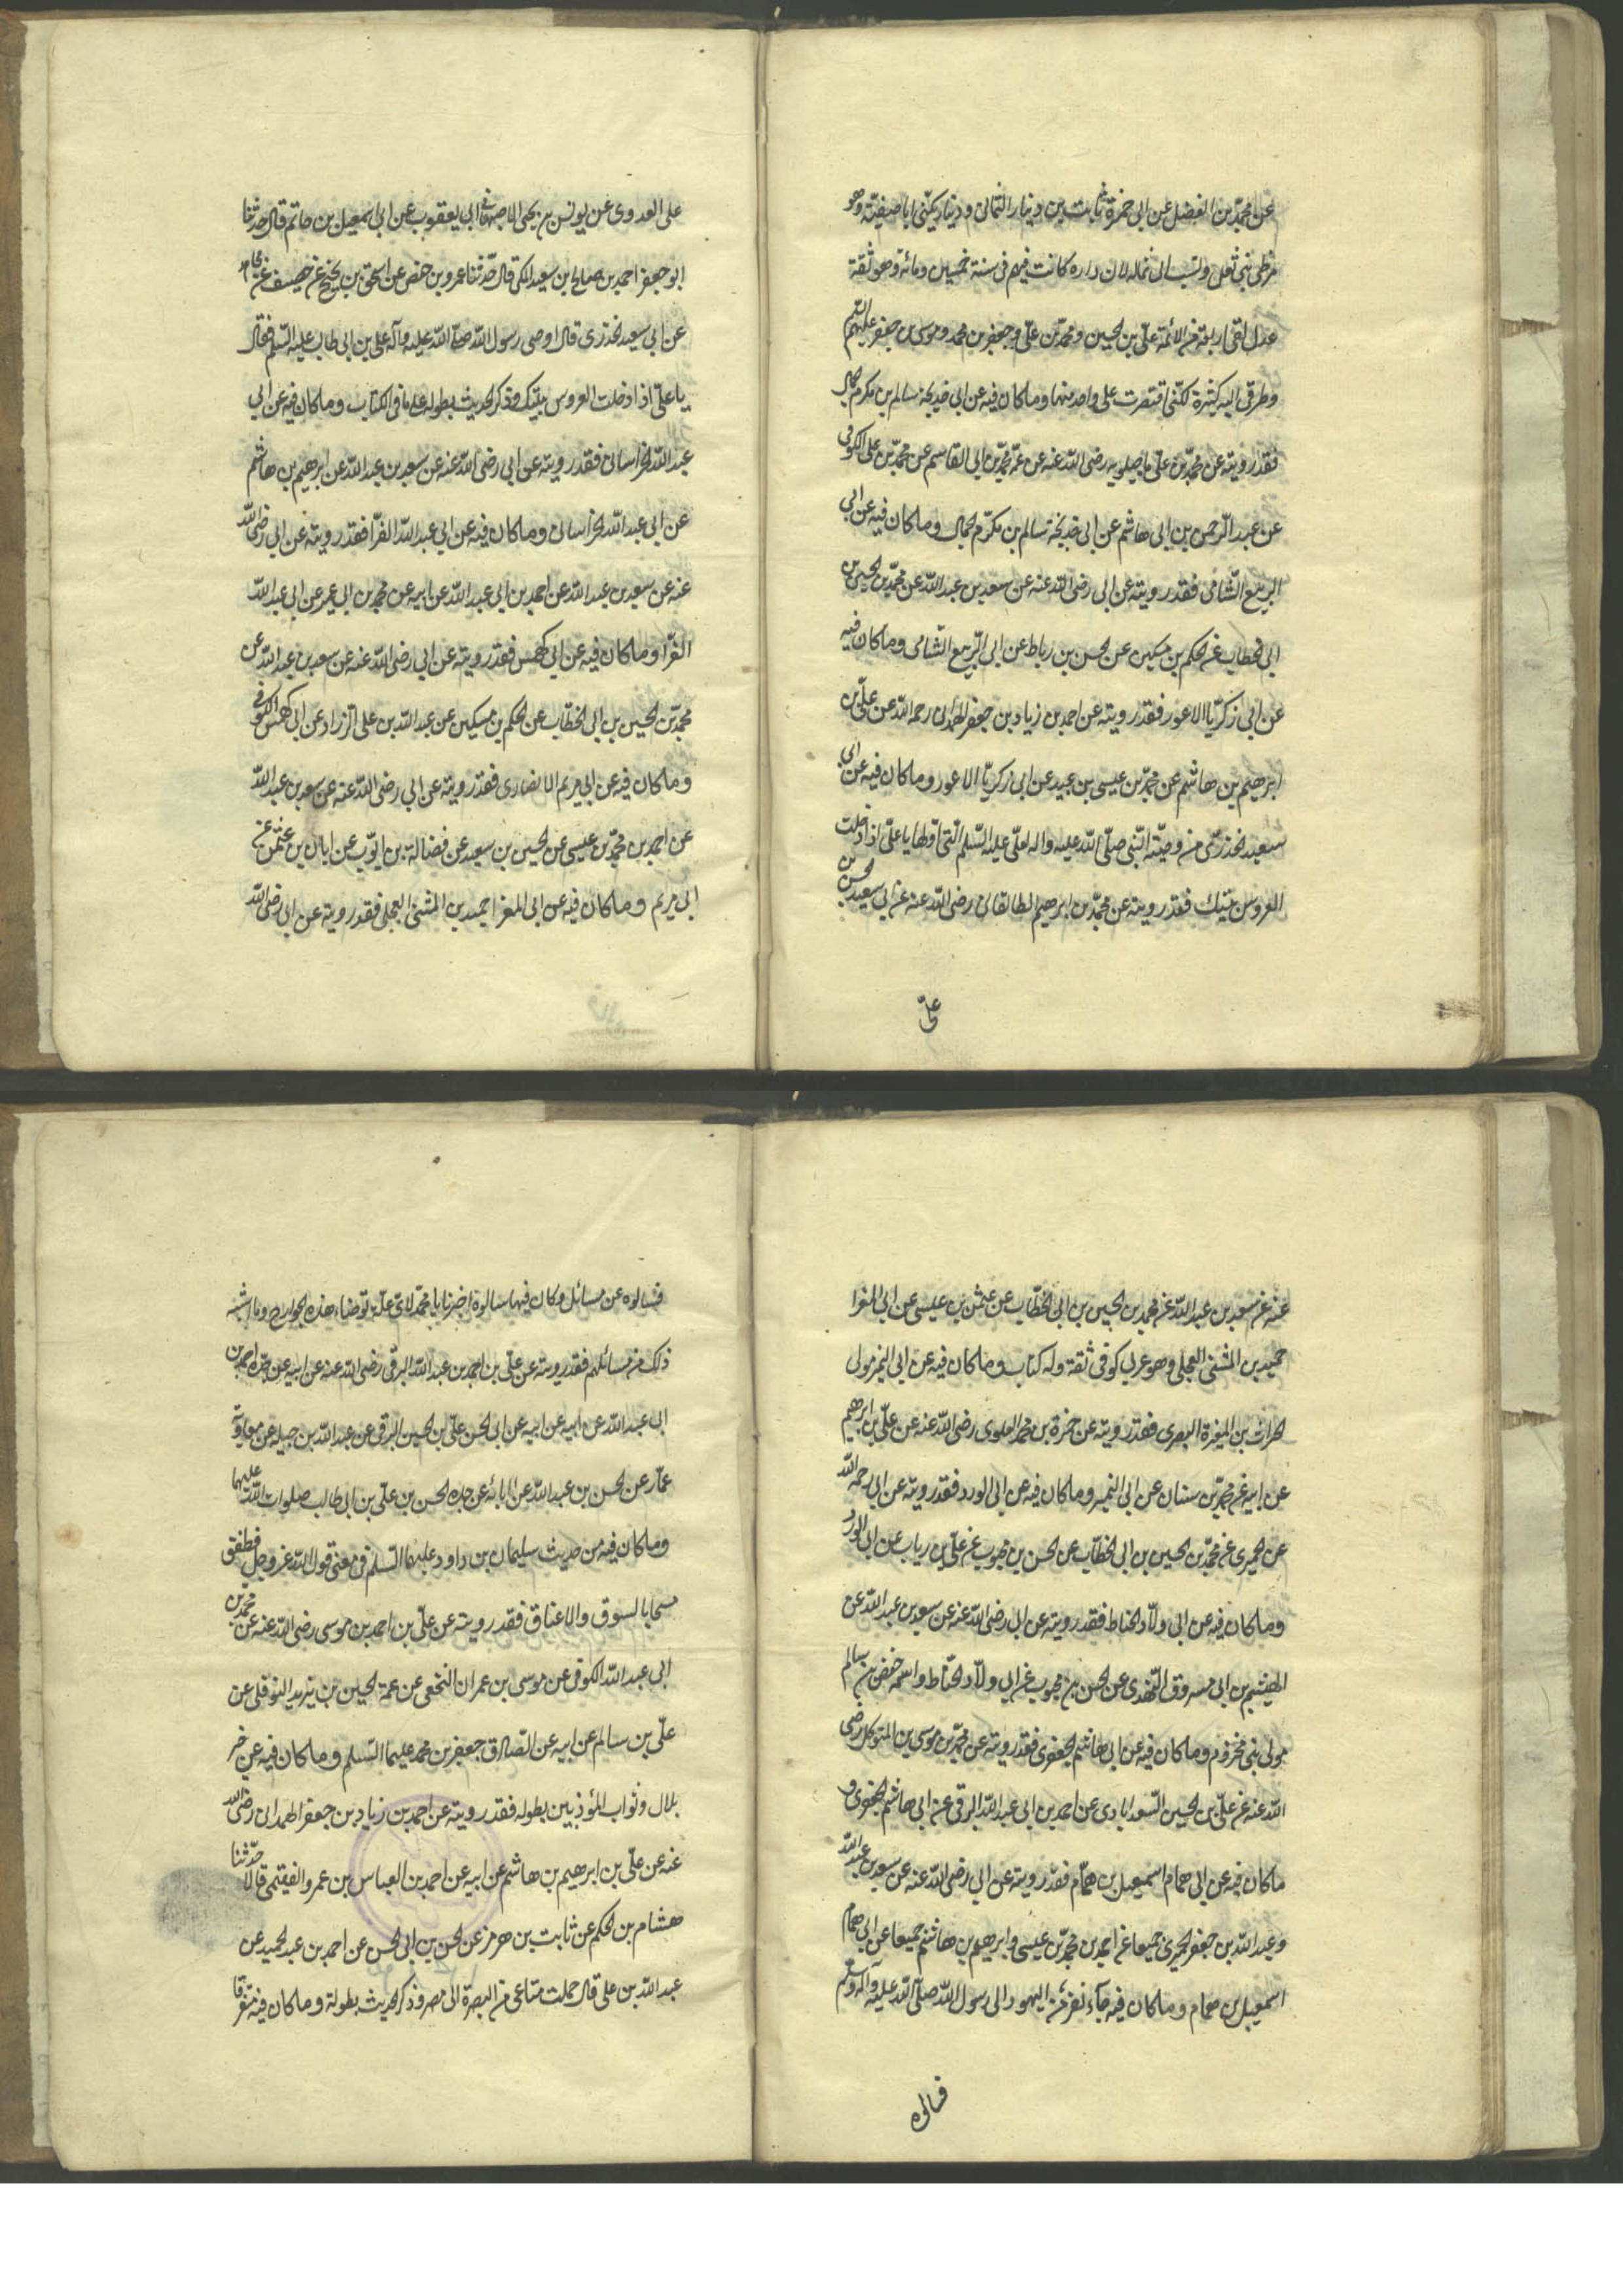 عن محمد بن الفضل عن ابي حمزة ثابت بن دينار الثمالي ودينار يكنى ابا صفية وهو
من طي بني ثعل ونسب الى ثماله لان داره كانت فيهم في سنة خمسين ومائة وهو ثقة
عدل لقي اربعة من الائمة علي بن الحسين ومحمد بن علي وجعفر بن محمد وموسى بن جعفر عليهم السلم
وطرقي اليه كثيرة لكني اقتصرت على واحد منها وما كان فيه عن ابي خديجة سالم بن مكرم الجمال
فقد رويته عن محمد بن علي ماجيلويه رضي الله عنه عن عمه محمد بن ابي القاسم عن محمد بن علي الكوفي
عن عبد الرحمن بن ابي هاشم عن ابي خديجة سالم بن مكرم الجمال وما كان فيه عن ابي
الربيع الشامي فقد رويته عن ابي رضي الله عنه عن سعد بن عبد الله عن محمد بن الحسين بن
ابي الخطاب عن الحكم بن مسكين عن الحسن بن رباط عن ابي الربيع الشامي وما كان فيه
عن ابي زكريا الاعور فقد رويته عن احمد بن زياد بن جعفر الهمداني رحمه الله عن علي بن
ابرهيم بن هاشم عن محمد بن عيسى بن عبيد عن ابي زكريا الاعور وما كان فيه عن ابي
سعيد الخدري من وصية النبي صلى الله عليه واله لعلي عليه السلم التي اولها يا علي اذا دخلت
العروس بيتك فقد رويته عن محمد بن ابرهيم الطالقاني رضي الله عنه عن ابي سعيد الحسن بن
علي
علي العدوي عن يونس بن يحيى الاصبهاني ابي يعقوب عن ابي اسمعيل بن حاتم قال حدثنا
ابو جعفر احمد بن صالح بن سعيد المكي قال حدثنا عمرو بن حفص عن اسحق بن نجيح عن خصيف عن مجاهد
عن ابي سعيد الخدري قال اوصى رسول الله صلى الله عليه وآله علي بن ابي طالب عليه السلم فقال
يا علي اذا دخلت العروس بيتك وذكر الحديث بطوله على ما في الكتاب وما كان فيه عن ابي
عبد الله الخراساني فقد رويته عن ابي رضي الله عنه عن سعد بن عبد الله عن ابرهيم بن هاشم
عن ابي عبد الله الخراساني وما كان فيه عن ابي عبد الله الفرا فقد رويته عن ابي رضي الله
عنه عن سعد بن عبد الله عن احمد بن ابي عبد الله عن ابيه عن محمد بن ابي عمير عن ابي عبد الله
الفرا وما كان فيه عن ابي كهمس فقد رويته عن ابي رضي الله عنه عن سعد بن عبد الله عن
محمد بن الحسين بن ابي الخطاب عن الحكم بن مسكين عن عبد الله بن علي الزراد عن ابي كهمس الكوفي
وما كان فيه عن ابي مريم الانصاري فقد رويته عن ابي رضي الله عنه عن سعد بن عبد الله
عن احمد بن محمد بن عيسى عن الحسين بن سعيد عن فضالة بن ايوب عن ابان بن عثمن عن
ابي مريم وما كان فيه عن ابي المغرا حميد بن المثنى العجلي فقد رويته عن ابي رضي الله
عنه عن سعد بن عبد الله عن محمد بن الحسين بن ابي الخطاب عن عثمن بن عيسى عن ابي المغرا
حميد بن المثنى العجلي وهو عربي كوفي ثقة وله كتاب وما كان فيه عن ابي النمير مولى
الحراث بن المغيرة البصري فقد رويته عن حمزة بن محمد العلوي رضي الله عنه عن علي بن ابرهيم
عن ابيه عن محمد بن سنان عن ابي النمير وما كان فيه عن ابي الورد فقد رويته عن ابي رحمه الله
عن الحميري عن محمد بن الحسين بن ابي الخطاب عن الحسن بن محبوب عن علي بن رياب عن ابي الورد
وما كان فيه عن ابي ولاد الحناط فقد رويته عن ابي رضي الله عنه عن سعد بن عبد الله عن
الهيثم بن ابي مسروق النهدي عن الحسن بن محبوب عن ابي ولاد الحناط واسمه حفص بن سالم
مولى بني مخزوم وما كان فيه عن ابي هاشم الجعفري فقد رويته عن محمد بن موسى بن المتوكل رضي
الله عنه عن علي بن الحسين السعدابادي عن احمد بن ابي عبد الله البرقي عن ابي هاشم الجعفري و
ما كان فيه عن ابي همام اسمعيل بن همام فقد رويته عن ابي رضي الله عنه عن سعد بن عبد الله
وعبد الله بن جعفر الحميري جميعا عن احمد بن محمد بن عيسى وابرهيم بن هاشم جميعا عن ابي همام
اسمعيل بن همام وما كان فيه جآء نفر من اليهود الى رسول الله صلى الله عليه وآله وسلم
فسالوه
فسالوه عن مسائل وكان فيها سالوه اخبرنا يا محمد لاي علة توضاء هذه الجوارح وما اشبه
ذلك من مسائلهم فقد رويته عن علي بن احمد بن عبد الله البرقي رضي الله عنه عن ابيه عن جده احمد بن
ابي عبد الله عن ابيه عن ابيه عن ابي الحسن علي بن الحسين البرقي عن عبد الله بن جبله عن معاوية
عمار عن الحسن بن عبد الله عن ابائه عن جده الحسن بن علي بن ابي طالب صلوات الله عليهما
وما كان فيه من حديث سليمان بن داود عليهما السلم في معنى قول الله عز وجل فطفق
مسحا بالسوق والاعناق فقد رويته عن علي بن احمد بن موسى رضي الله عنه عن محمد بن
ابي عبد الله الكوفي عن موسى بن عمران النخعي عن عمه الحسين بن يزيد النوفلي عن
علي بن سالم عن ابيه عن الصادق جعفر بن محمد عليهما السلم وما كان فيه عن خبر
بلال وثواب المؤذنين بطوله فقد رويته عن احمد بن زياد بن جعفر الهمداني رضي الله
عنه عن علي بن ابرهيم بن هاشم عن ابيه عن احمد بن العباس بن عمرو الفقيمي قالا حدثنا
هشام بن الحكم عن ثابت بن هرمز عن الحسن بن ابي الحسن عن احمد بن عبد الحميد عن
عبد الله بن علي قال حملت متاعي من البصرة الى مصر وذكر الحديث بطوله وما كان فيه متفرقا